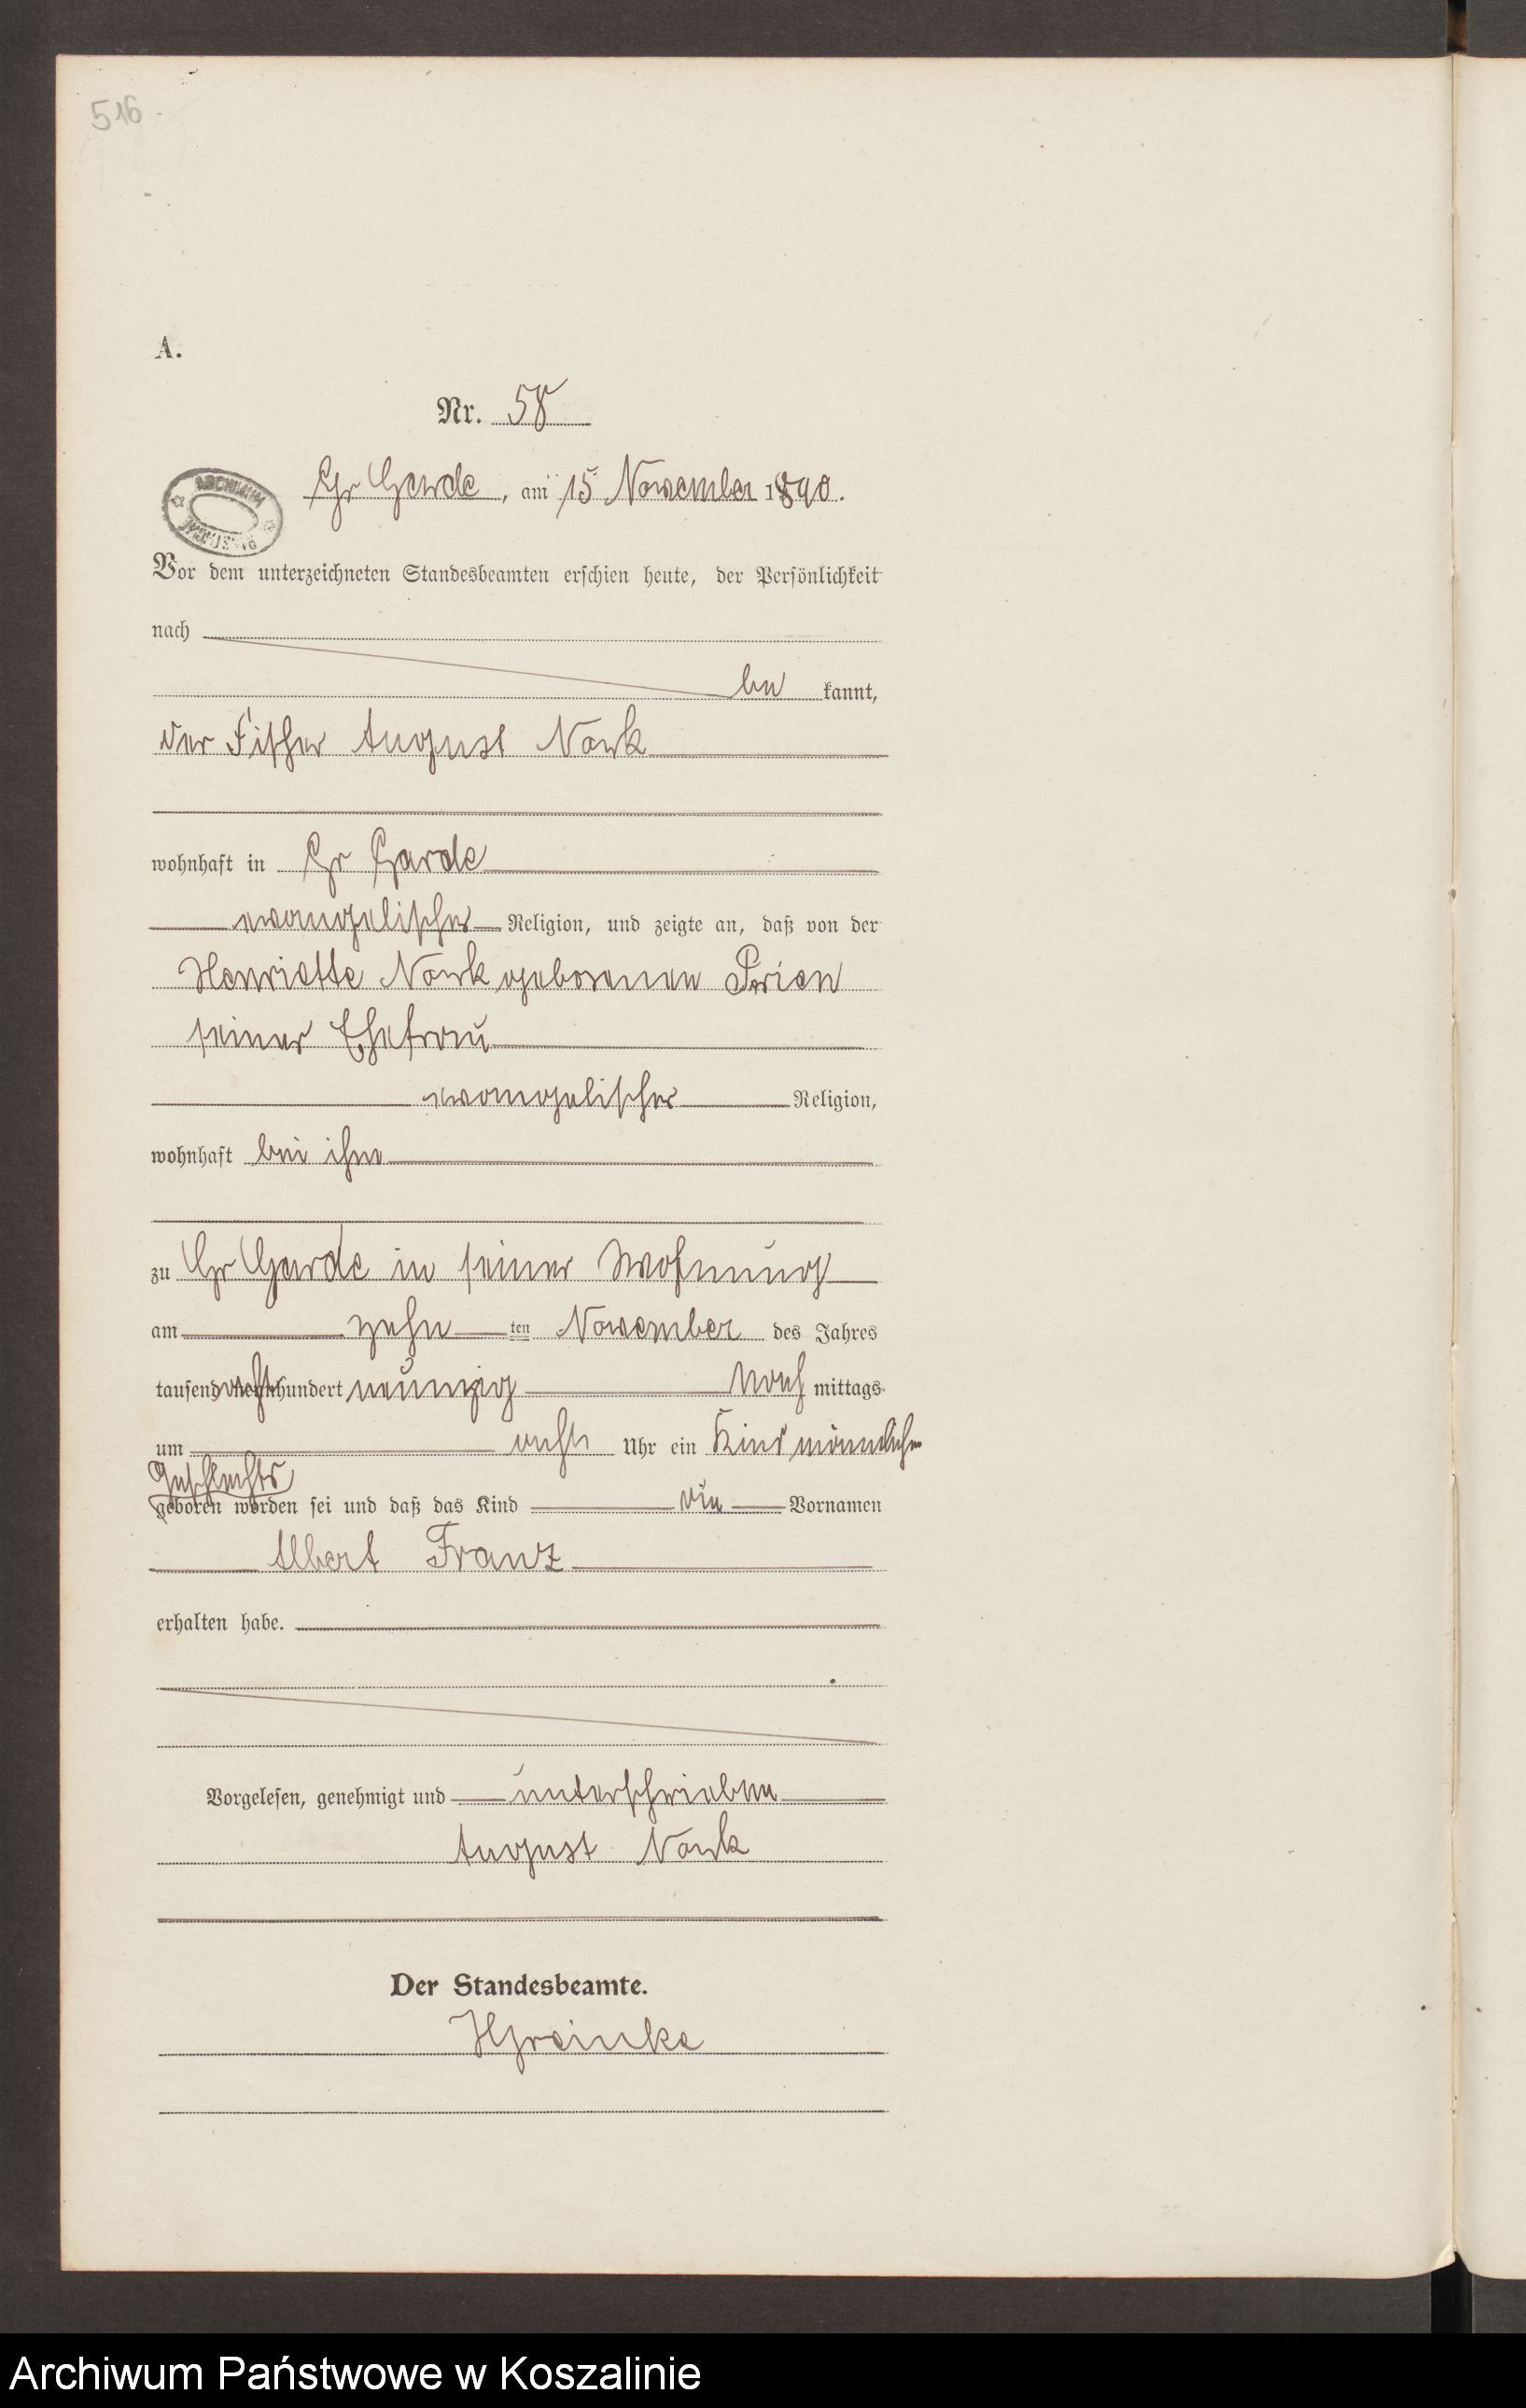 516
A.
Nr. 58
Gr Garde, am 15 November 1890.
Vor dem unterzeichneten Standesbeamten erschien heute, der Persönlichkeit
nach
be kannt,
der Fischer August Nowk
wohnhaft in Gr Garde
evangelischer Religion, und zeigte an, daß von der
Henriette Nowk geborenen Perien
seiner Ehefrau
evangelischer Religion,
wohnhaft bei ihm
zu Gr Garde in seiner Wohnung
am zehn ten November des Jahres
tausend acht hundert neunzig Nach mittags
um acht Uhr ein Kind männlichen
Geschlechts
geboren worden sei und daß das Kind die Vornamen
Albert Franz
erhalten habe.
Vorgelesen, genehmigt und unterschrieben
August Nowk
Der Standesbeamte.
Archiwum Państwowe w Koszalinie